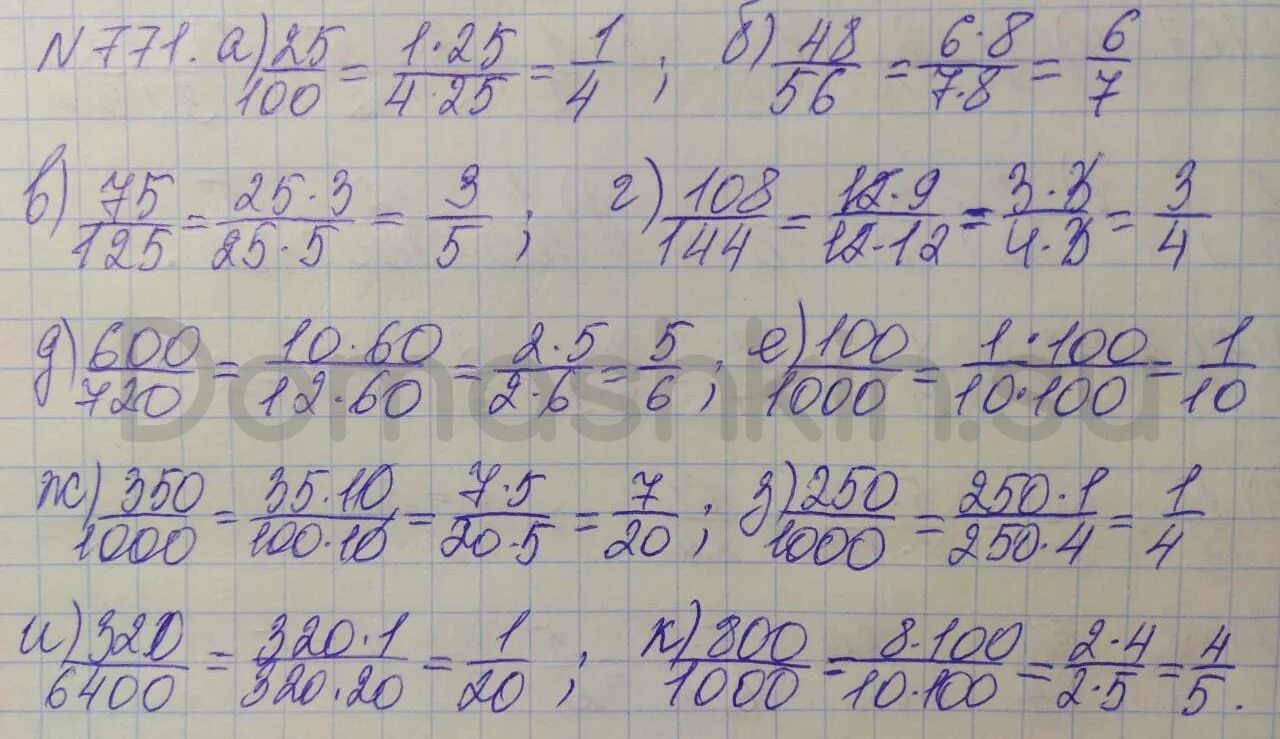 N 771. а) 25/100 = 1·25/4·25 = 1/4 ; б) 48/56 = 6·8/7·8 = 6/7
в) 75/125 = 25·3/25·5 = 3/5 ; г) 108/144 = 12·9/12·12 = 3·3/4·3 = 3/4
д) 600/720 = 10·60/12·60 = 2·5/2·6 = 5/6 ; е) 100/1000 = 1·100/10·100 = 1/10
ж) 350/1000 = 35·10/100·10 = 7·5/20·5 = 7/20 ; з) 250/1000 = 250·1/250·4 = 1/4
и) 320/6400 = 320·1/320·20 = 1/20 ; к) 800/1000 = 8·100/10·100 = 2·4/2·5 = 4/5 .